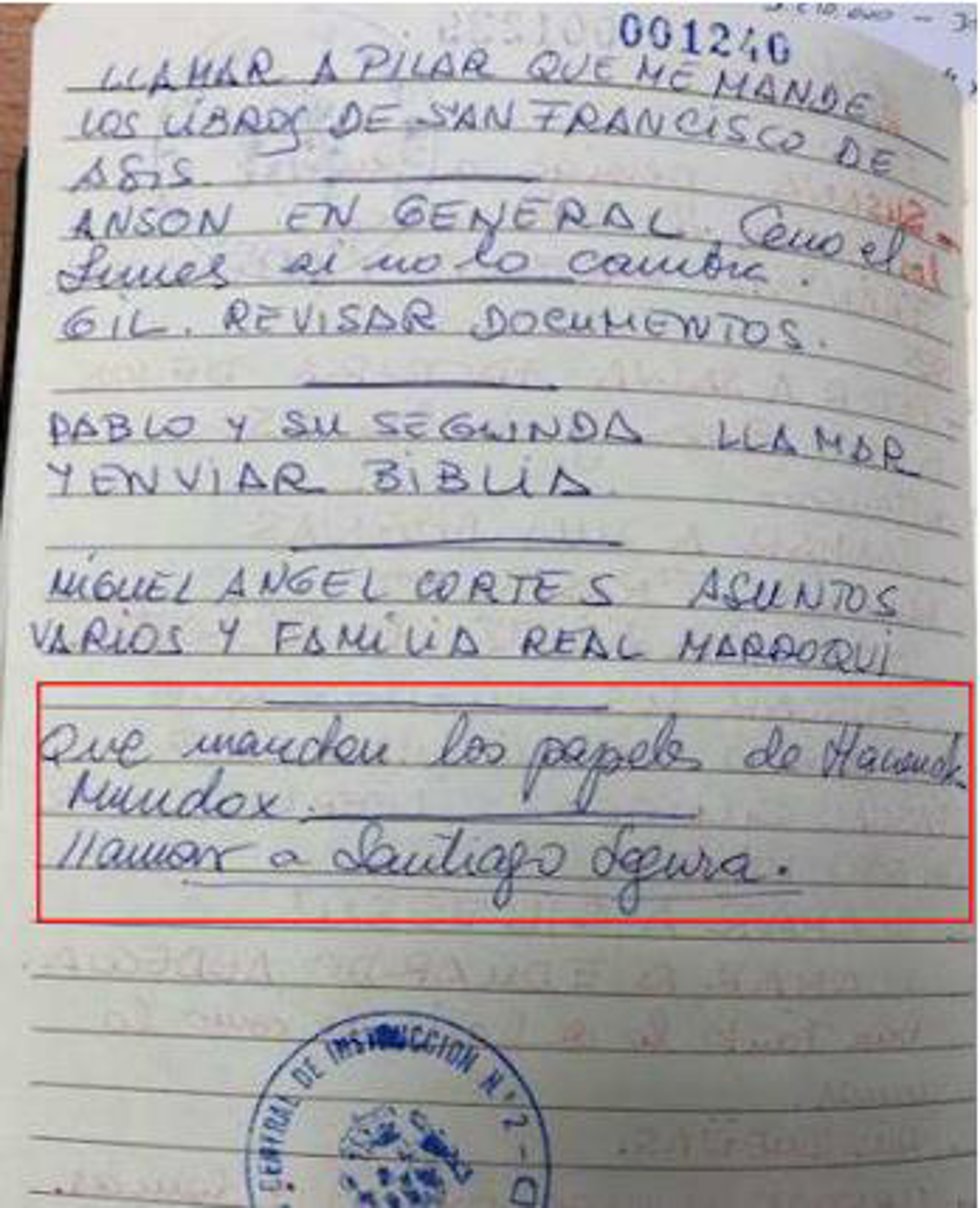 001240
LLAMAR A PILAR QUE ME MANDE
LOS LIBROS DE SAN FRANCISCO DE
ASIS.
ANSON EN GENERAL. Ceno el
Lunes si no lo cambia.
GIL. REVISAR DOCUMENTOS.
PABLO Y SU SEGUNDA LLAMAR
Y ENVIAR BIBLIA
MIGUEL ANGEL CORTES ASUNTOS
VARIOS Y FAMILIA REAL MARROQUI
Que manden los papeles de Hacienda
Mundox.
llamar a Santiago Segura.
CENTRAL DE INSTRUCCION N.º 2 - D